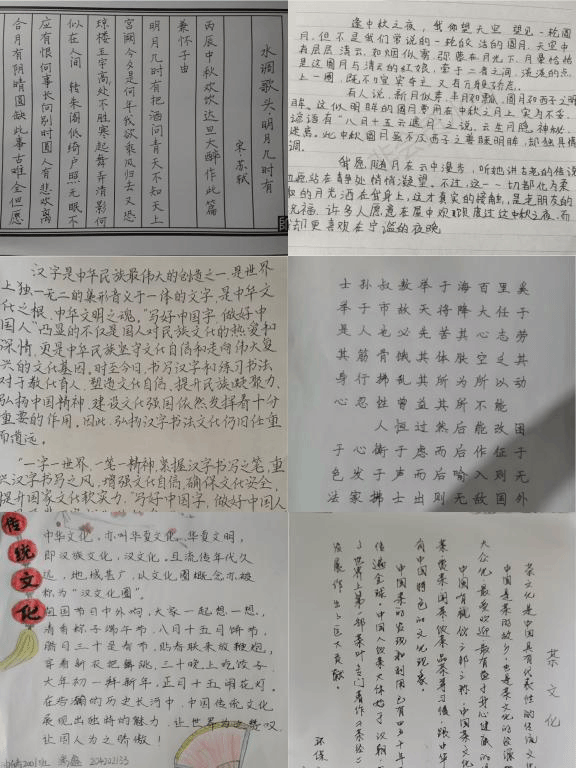 水调歌头·明月几时有
宋·苏轼
丙辰中秋欢饮达旦大醉作此篇
兼怀子由
明月几时有把酒问青天不知天上
宫阙今夕是何年我欲乘风归去又恐
琼楼玉宇高处不胜寒起舞弄清影何
似在人间 转朱阁低绮户照无眠不
应有恨何事长向别时圆人有悲欢离
合月有阴晴圆缺此事古难全但愿
逢中秋之夜，我仰望天空，望见一轮圆
月，但不是我们常说的一轮皎洁的圆月，天空中
有层层清云，和烟似雾，弥蒙在月光下，月晕恰恰
是这圆月与清云的红娘，牵于二者之间，淡淡的点
上一圈，既不喧宾夺主，又有万般娇态。
有人说，新月似芽，半月如瓢，圆月如西子之明
眸，这似明眸的圆月费用在中秋之月上，实为不妄。
谚语有“八月十五云遮月”之说，云生月隐，神秘，
迷离。此中秋圆月虽不及西子之妻睐明眸，却独具情
调。
我愿随月在云中漫步，听她讲古老的传说
也愿站在静处悄悄凝望。不过，这一切都化为柔
和的月光洒在我身上，这才真实的接触，是老朋友的
祝福。许多人愿意在屋中欢欢喜喜度过这中秋之夜，而
我却更喜欢在宁谧的夜晚
汉字是中华民族最伟大的创造之一，是世界
上独一无二的集形音义于一体的文字，是中华文
化之根、中华文明之魂，“写好中国字，做好中
国人”凸显的不仅是国人对民族文化的热爱和
深情，更是中华民族坚守文化自信和走向伟大复
兴的文化基因，时至今日，书写汉字和练习书法
对于教化育人、塑造文化自信、提升民族凝聚力、
弘扬中国精神、建设文化强国依然发挥着十分
重要的作用。因此，弘扬汉字书法文化仍旧任重
而道远。
“一字一世界，一笔一精神，紧握汉字书写之笔，重
兴汉字书写之风，增强文化自信，确保文化安全，
提升国家文化软实力，“写好中国字，做好中国人
士孙叔敖举于海百里奚
举于市故天将降大任于
是人也必先苦其心志劳
其筋骨饿其体肤空乏其
身行拂乱其所为所以动
心忍性曾益其所不能
人恒过然后能改困
于心衡于虑而后作征于
色发于声而后喻入则无
法家拂士出则无敌国外
传统文化
中华文化，亦叫华夏文化、华夏文明，
即汉族文化，汉文化。且流传年代久
远，地域甚广，以文化圈概念亦被
称为“汉文化圈”。
祖国节日中外响，大家一起想一想，
清香粽子端午节，八月十五月饼节，
腊月三十是春节，贴春联来放鞭炮，
穿着新衣把舞跳，三十晚上吃饺子，
大年初一拜新年，正月十五闹花灯。
在浩瀚的历史长河中，中国传统文化
展现出独特的魅力，让世界为之赞叹，
让国人为之骄傲！
茶文化
茶文化是中国具有代表性的传统文化
中国是茶的故乡，也是茶文化的发源
大众化、最受欢迎、最有益于身心健康的
中国有礼仪之邦之称，中国茶文化
有中国特色的文化现象。
中国茶的发现和利用已有四五千年
传遍全球。中国人饮茶大体始于汉朝
了世界上第一部茶叶专门著作《茶经》
发展作出了巨大贡献。